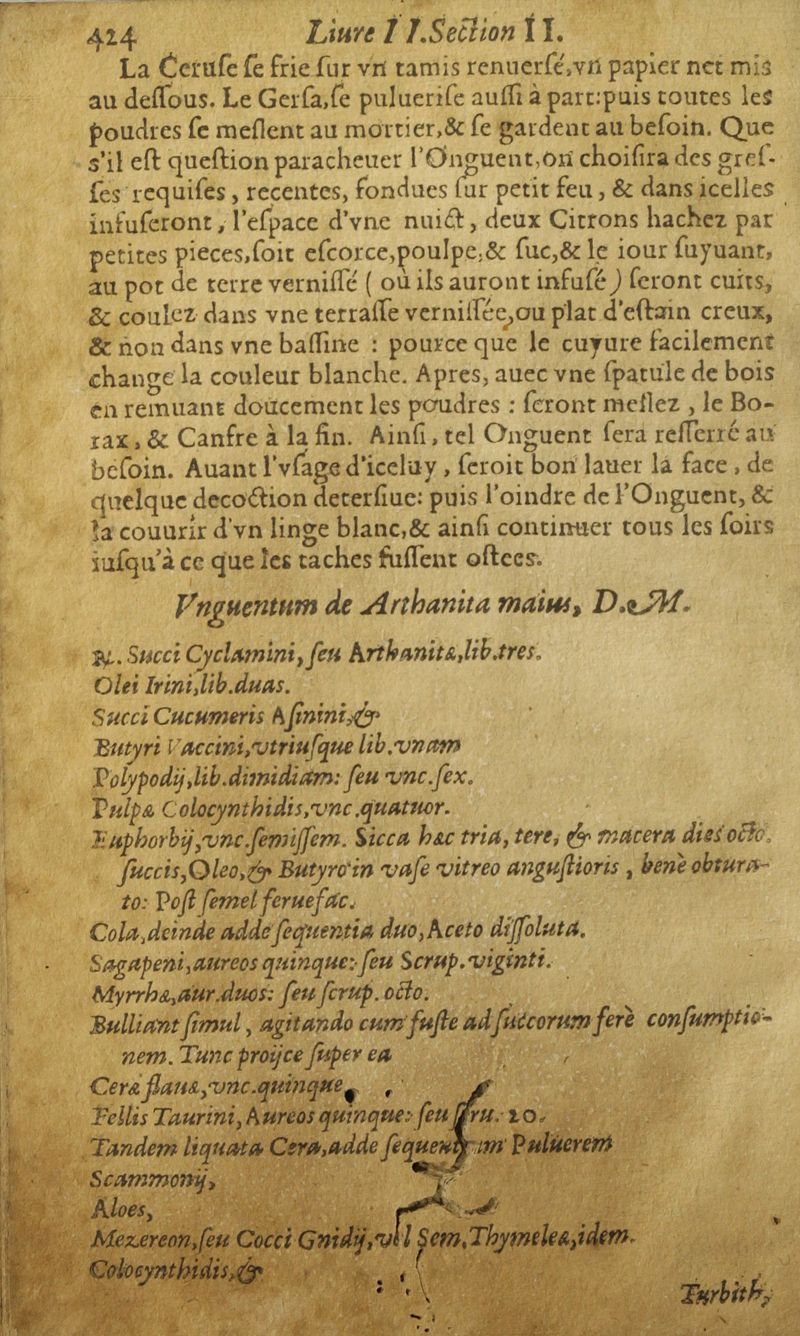 424 Liure I I.Section I I.
La Cerufe ſe frie ſur vn tamis renuerſé,vn papier net mis
au deſſous. Le Gerſa,ſe puluerife auſſi à part:puis toutes les
poudres ſe meſlent au mortier,& ſe gardent au beſoin. Que
s'il eſt queſtion paracheuer l'Onguent,on choiſira des greſ-
ſes requiſes, recentes, fondues ſur petit feu, & dans icelles
infuſeront, l'eſpace d'vne nuict, deux Citrons hachez par
petites pieces,ſoit eſcorce,poulpe,& ſuc,& le iour ſuyuant,
au pot de terre verniſſé ( où ils auront infuſé) ſeront cuits,
& coulez dans vne terraſſe verniſſée,ou plat d'eſtain creux,
& non dans vne baſſine : pource que le cuyure facilement
change la couleur blanche. Apres, auec vne ſpatule de bois
en remuant doucement les poudres : ſeront meſlez , le Bo-
rax, & Canfre à la fin. Ainſi, tel Onguent ſera reſſerré au
beſoin. Auant l'vſage d'iceluy, ſeroit bon lauer la face, de
quelque decoction deterſiue: puis l'oindre de l'Onguent, &
la couurir d'vn linge blanc,& ainſi continuer tous les ſoirs
iuſqu'à ce que les taches fuſſent oſtees.
Vnguentum de Arthanita maius, D.M.
℞. Succi Cyclamini, ſeu Arthanitæ,lib.tres.
Olei Irini,lib.duas.
Succi Cucumeris Aſinini,&
Butyri Vaccini,vtriuſque lib.vnam
Polypodij,lib.dimidiam: ſeu vnc.ſex.
Pulpæ Colocynthidis,vnc.quatuor.
Euphorbij,vnc.ſemiſſem. Sicca hæc tria, tere, & macera dies octo,
ſuccis,Oleo,& Butyro in vaſe vitreo anguſtioris , benè obtura-
to: Poſt ſemel feruefac.
Cola,deinde adde ſequentia duo,Aceto diſſoluta.
Sagapeni,aureos quinque: ſeu Scrup.viginti.
Myrrhæ,aur.duos: ſeu ſcrup. octo.
Bulliant ſimul, agitando cum fuſte ad ſuccorum ferè conſumptio-
nem. Tunc proijce ſuper ea
Ceræ flauæ,vnc.quinque
Fellis Taurini, Aureos quinque: ſeu ſcru. 20.
Tandem liquata Cera,adde ſequentium Puluerem
Scammonij,
Aloes,
Mezereon,ſeu Cocci Gnidij,vel Sem.Thymeleæ,idem.
Colocynthidis,&
Turbith,